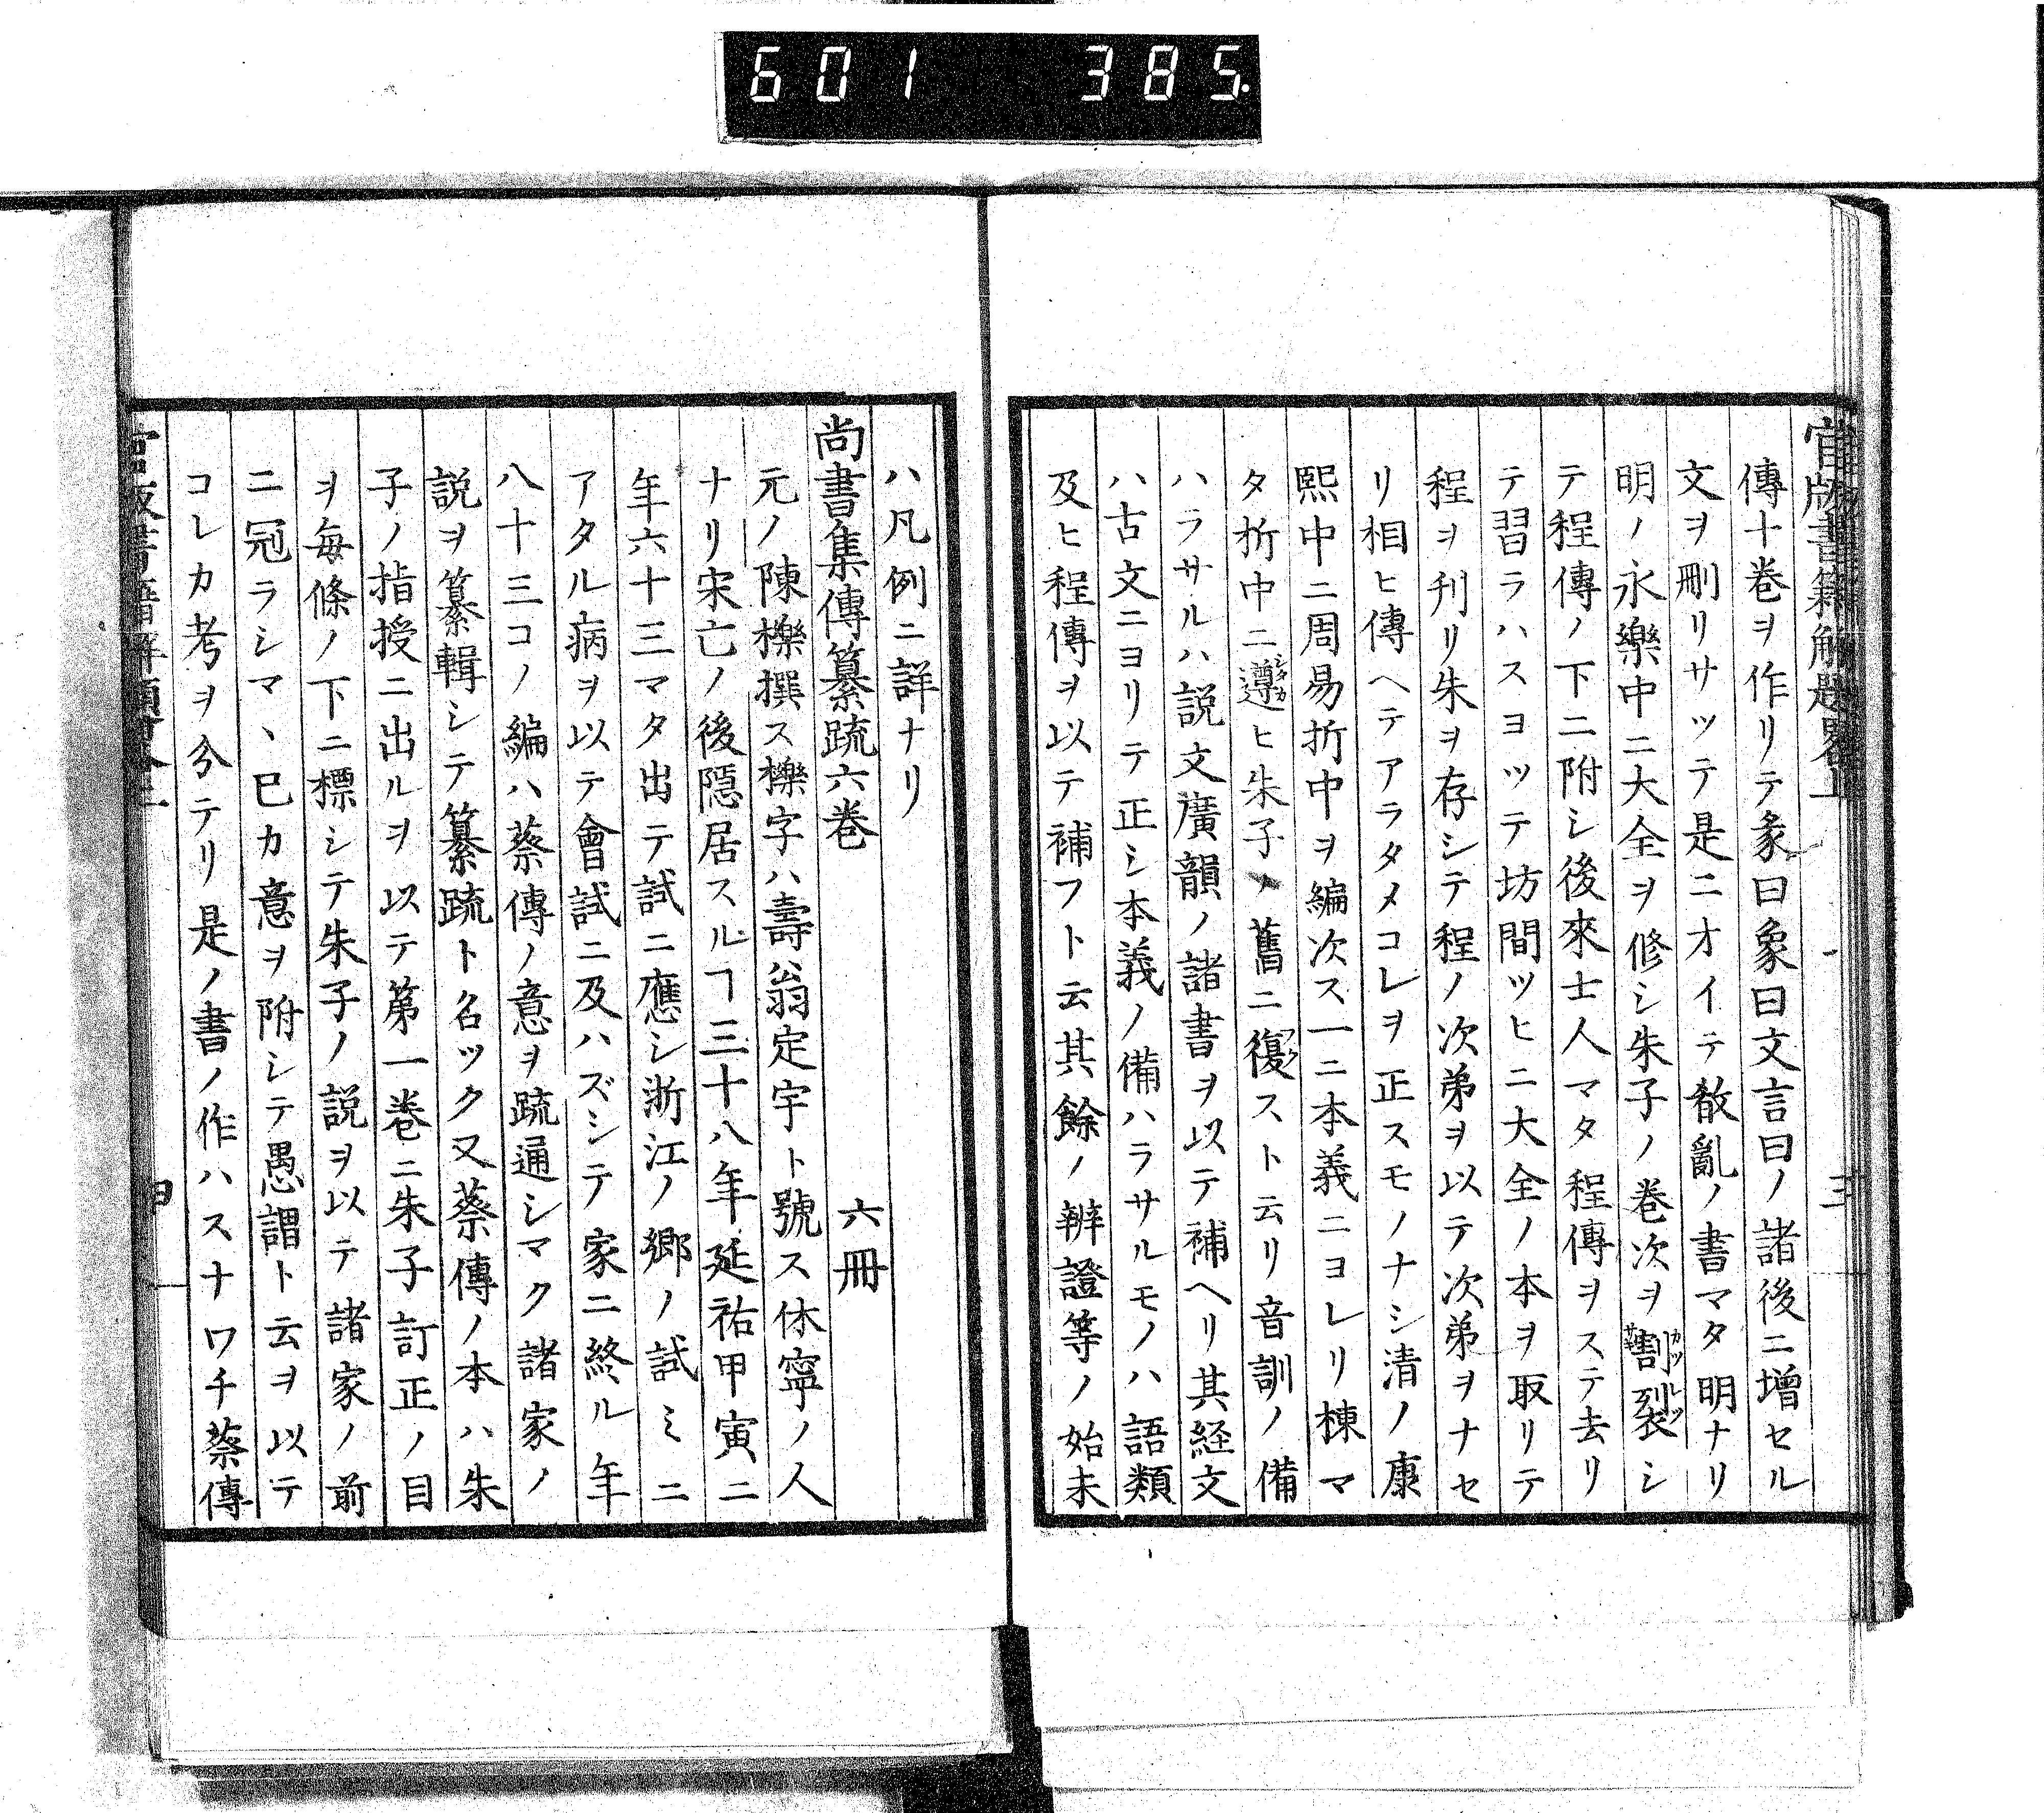 601 385.
官版書籍解題畧上 三
傳十卷ヲ作リテ彖曰象曰文言曰ノ諸後ニ增セル
文ヲ刪リサツテ是ニオイテ散亂ノ書マタ明ナリ
明ノ永樂中ニ大全ヲ修シ朱子ノ卷次ヲ割裂シ
テ程傳ノ下ニ附シ後來士人マタ程傳ヲステ去リ
テ習ラハスヨツテ坊間ツヒニ大全ノ本ヲ取リテ
程ヲ刋リ朱ヲ存シテ程ノ次第ヲ以テ次第ヲナセ
リ相ヒ傳ヘテアラタメコレヲ正スモノナシ清ノ康
熙中ニ周易折中ヲ編次ス一ニ本義ニヨレリ棟マ
タ折中ニ遵ヒ朱子ノ舊ニ復スト云リ音訓ノ備
ハラサルハ説文廣韻ノ諸書ヲ以テ補ヘリ其経文
ハ古文ニヨリテ正シ本義ノ備ハラサルモノハ語類
及ヒ程傳ヲ以テ補フト云其餘ノ辨證等ノ始末
ハ凡例ニ詳ナリ
尚書集傳纂疏六卷 六冊
元ノ陳櫟撰ス櫟字ハ壽翁定宇ト號ス休寧ノ人
ナリ宋亡ノ後隱居スルヿ三十八年延祐甲寅ニ
年六十三マタ出テ試ニ應シ浙江ノ郷ノ試ミニ
アタル病ヲ以テ會試ニ及ハズシテ家ニ終ル年
八十三コノ編ハ蔡傳ノ意ヲ疏通シマク諸家ノ
説ヲ纂輯シテ纂疏ト名ツク又蔡傳ノ本ハ朱
子ノ指授ニ出ルヲ以テ第一卷ニ朱子訂正ノ目
ヲ毎條ノ下ニ標シテ朱子ノ説ヲ以テ諸家ノ前
ニ冠ラシマヽ巳カ意ヲ附シテ愚謂ト云ヲ以テ
コレカ考ヲ分テリ是ノ書ノ作ハスナワチ蔡傳